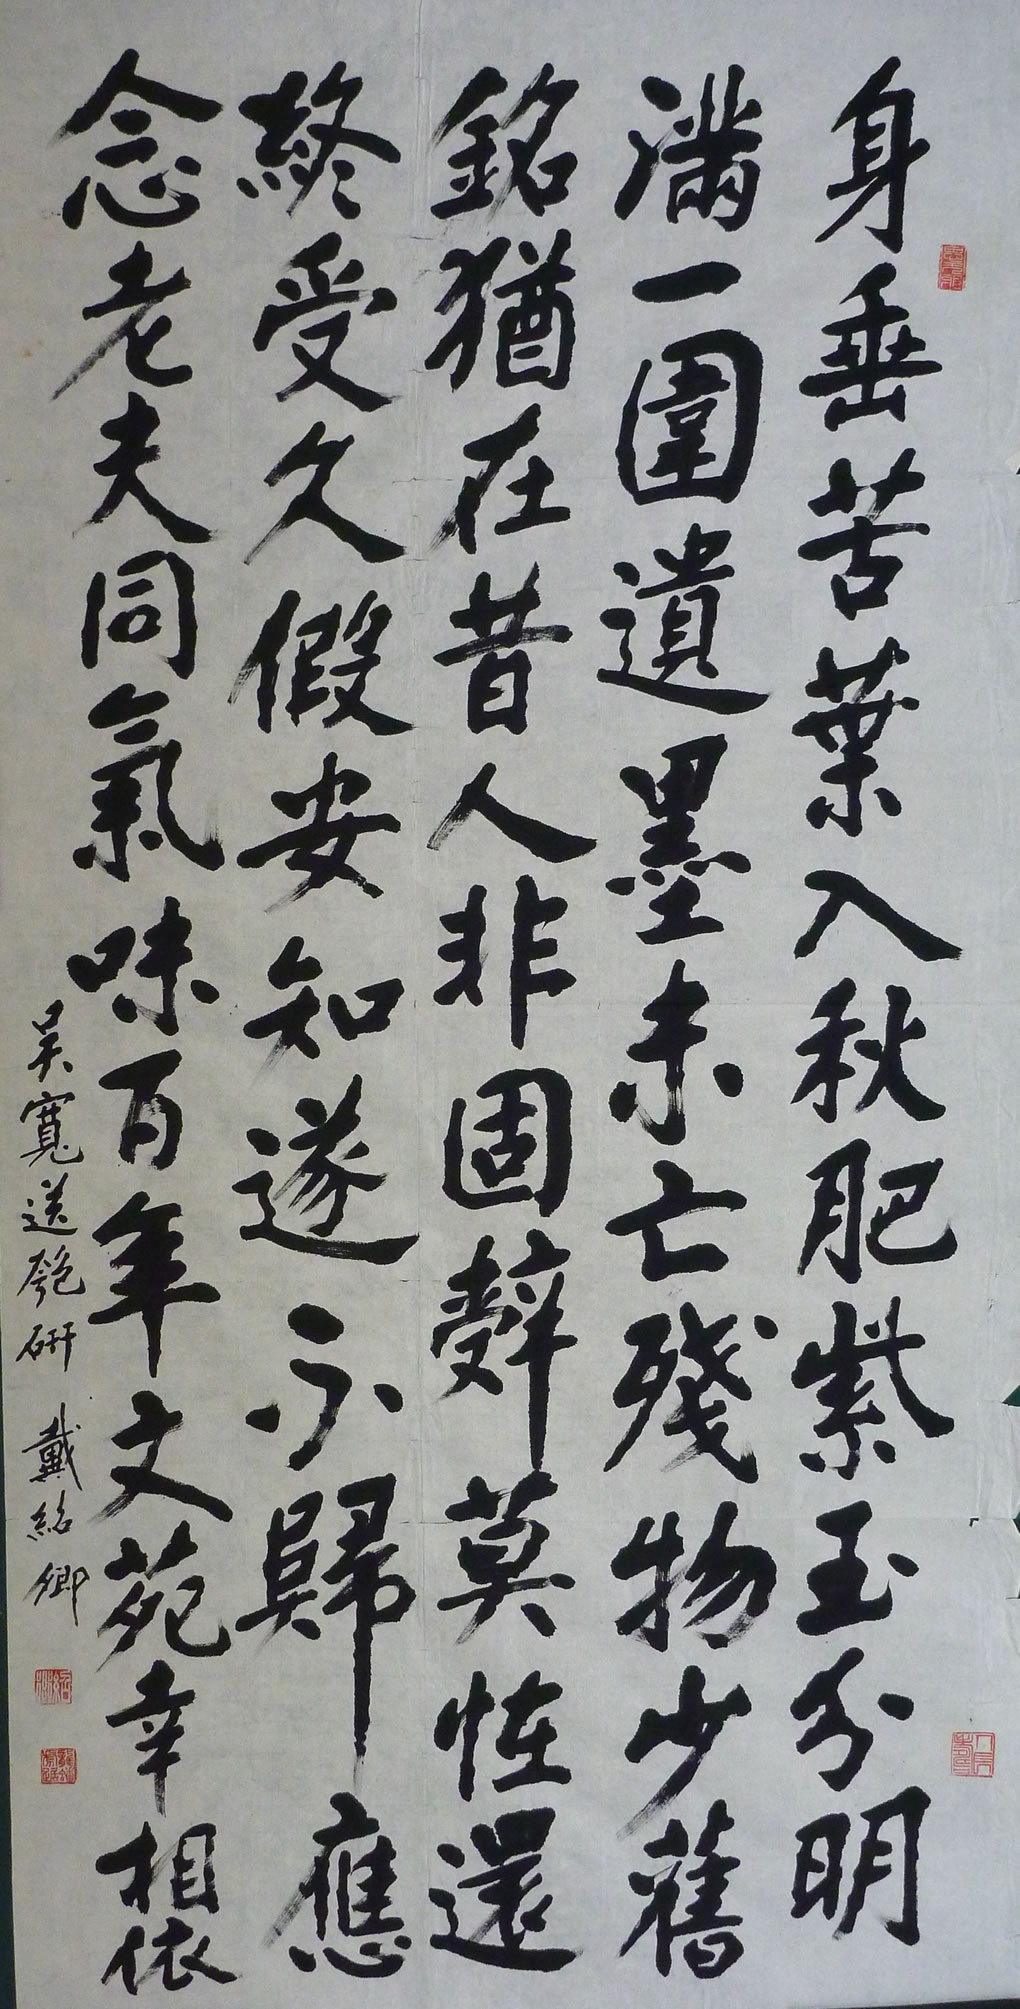 身垂苦葉入秋肥紫玉分明
滿一圍遺墨未亡殘物少舊
銘猶在昔人非固辭莫怪還
終受久假安知遂不歸應
念老夫同氣味百年文苑幸相依
吳寬送匏研 戴紹卿